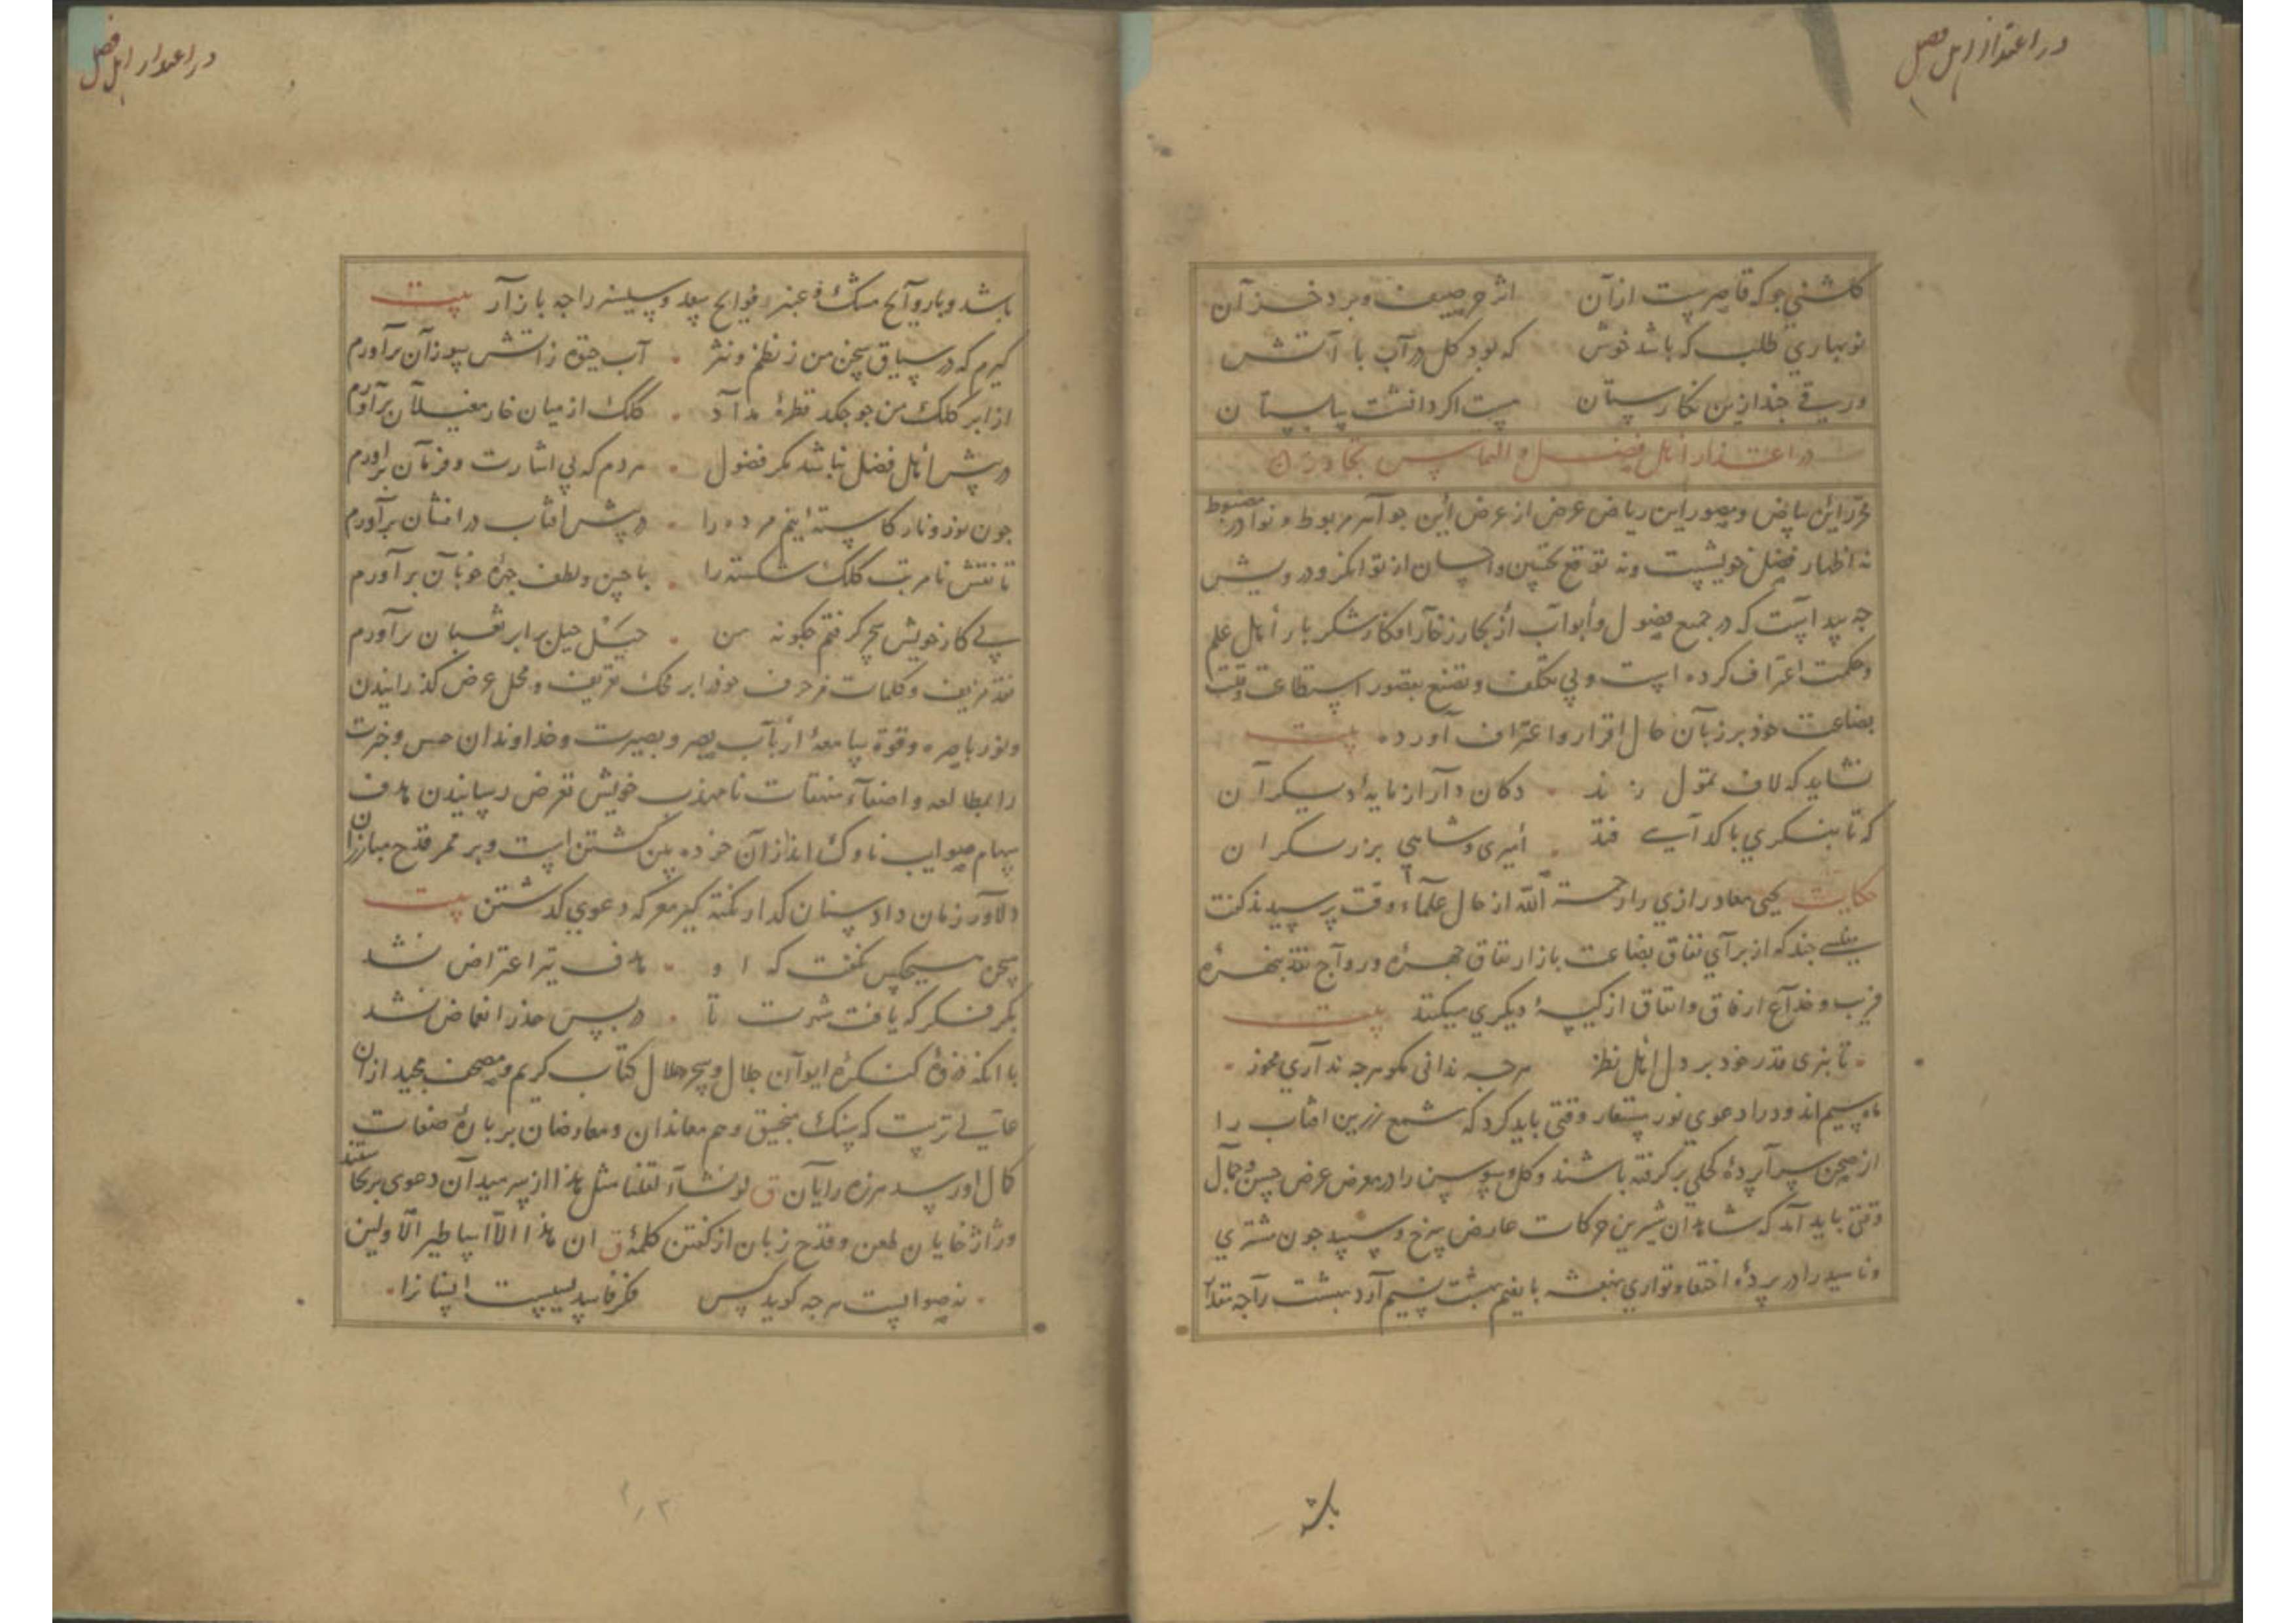 در اعتذار اهل فضل
گلشنی جو که قاصرست از آن
اثر صیف و برد خزان
نوبهاری طلب که باشد خوش
که بود کل در آب با آتش
ورقی چند ازین نکارستان
بیت اکر دانشت پاستان
در اعتذار اهل فضل و التماس تجاوز
محرر این بیاض و مصور این ریاض عرض از عرض این جواهر مربوط و نوادر مضبوط
نه اظهار فضل خویشست و نه توقع تحسین و احسان از توانکر و درویش
جه پیداست که در جمیع فصول و ابواب از بحار زخار افکار شکربار اهل علم
و حکمت اعتراف کرده است و بی تکلف و تصنع بقصور استطاعت و قلت
بضاعت خود بر زبان حال اقرار و اعتراف آورده بیت
نشاید که لاف تمول زند
دکان دار از مایهٔ دیکران
که تا بنکری با کدایی فتد
امیری و شاهی بزر سکران
حکایت یحیی معاد رازی را رحمة الله از حال علماء وقت پرسیدند کفت
خیلی جند که از برای نفاق بضاعت بازار نفاق جهره در رواج نقد بهره
فریب و خداع ارفاق و انفاق از کیسهٔ دیکری میکنند بیت
تا بری قدر خود بر دل اهل نظر
هرجه ندانی مکو هرجه نداری مخور
ماه سیم اندود را دعوی نور مستعار وقتی باید کرد که شمع زرین افتاب را
از صحن سراپردهٔ کحلی برکرفته باشند و کل و سوسن را در معرض عرض حسن و جمال
وقتی باید آمد که شاهدان شیرین حرکات عارض سرخ و سپید جون مشتری
و ناهید را در پردهٔ اختفا و تواری بنفشه با نسیم بهشت نسیم آرد بهشت را جه مقدار
باشد
در اعتذار اهل فضل
باشد و با روایح مشک و عنبر فوایح بید و سیسنبر را جه بازار بیت
کیرم که در سیاق سخن من ز نظم و نثر
آب حیوة ز آتش سوزان برآورم
از ابر کلک من جو جکد قطرهٔ مداد
کلک از میان خار مغیلان برآورم
در پیش اهل فضل نباشد مکر فضول
هر دم که بی اشارت و فرمان برآورم
جون نور و نار کاسته اینم مرده را
در پیش افتاب درافشان برآورم
تا نقش نامرتب کلک شکسته را
با حسن و لطف جهرهٔ خوبان برآورم
پی کار خویش سحر کرفتم جکونه من
حیل برابر ثعبان برآورم
نقد مزیف و کلمات مزخرف خود را بر محک تعریف و محل عرض کذرانیدن
و نور باصره و قوة سامعهٔ ارباب بصر و بصیرت و خداوندان حس و خبرت
را بمطالعه و اصغاء منتقات نامهذب خویش تعرض رسانیدن هدف
سهام صواب ناوک اندازان خرده بین کشتن است و بر ممر قدح مبارزان
دلاور زمان داد سنان کدار نکته کیر معرکه دعوی کذشتن بیت
سخن هیچکس نکفت که او
هدف تیر اعتراض نشد
بکر فکر که یافت شهرت تا
در پس حذر انغماض نشد
با انکه غرفهٔ کنکرهٔ ایوان جلال و سحر حلال کتاب کریم و مصحف مجید از آن
عالی ترست که سنک منجنیق وهم معاندان و معارضان بر بارهٔ صفات
کمال او رسد هرزه رایان ق لو نشاء لقلنا مثل هذا از سر میدان دعوی برنخاستند
و ژاژخایان طعن و قدح زبان از کفتن کلمهٔ ق ان هذا الا اساطیر الاولین
نه صوابست هرجه کوید کس
فکر فاسد بسیست انسانرا